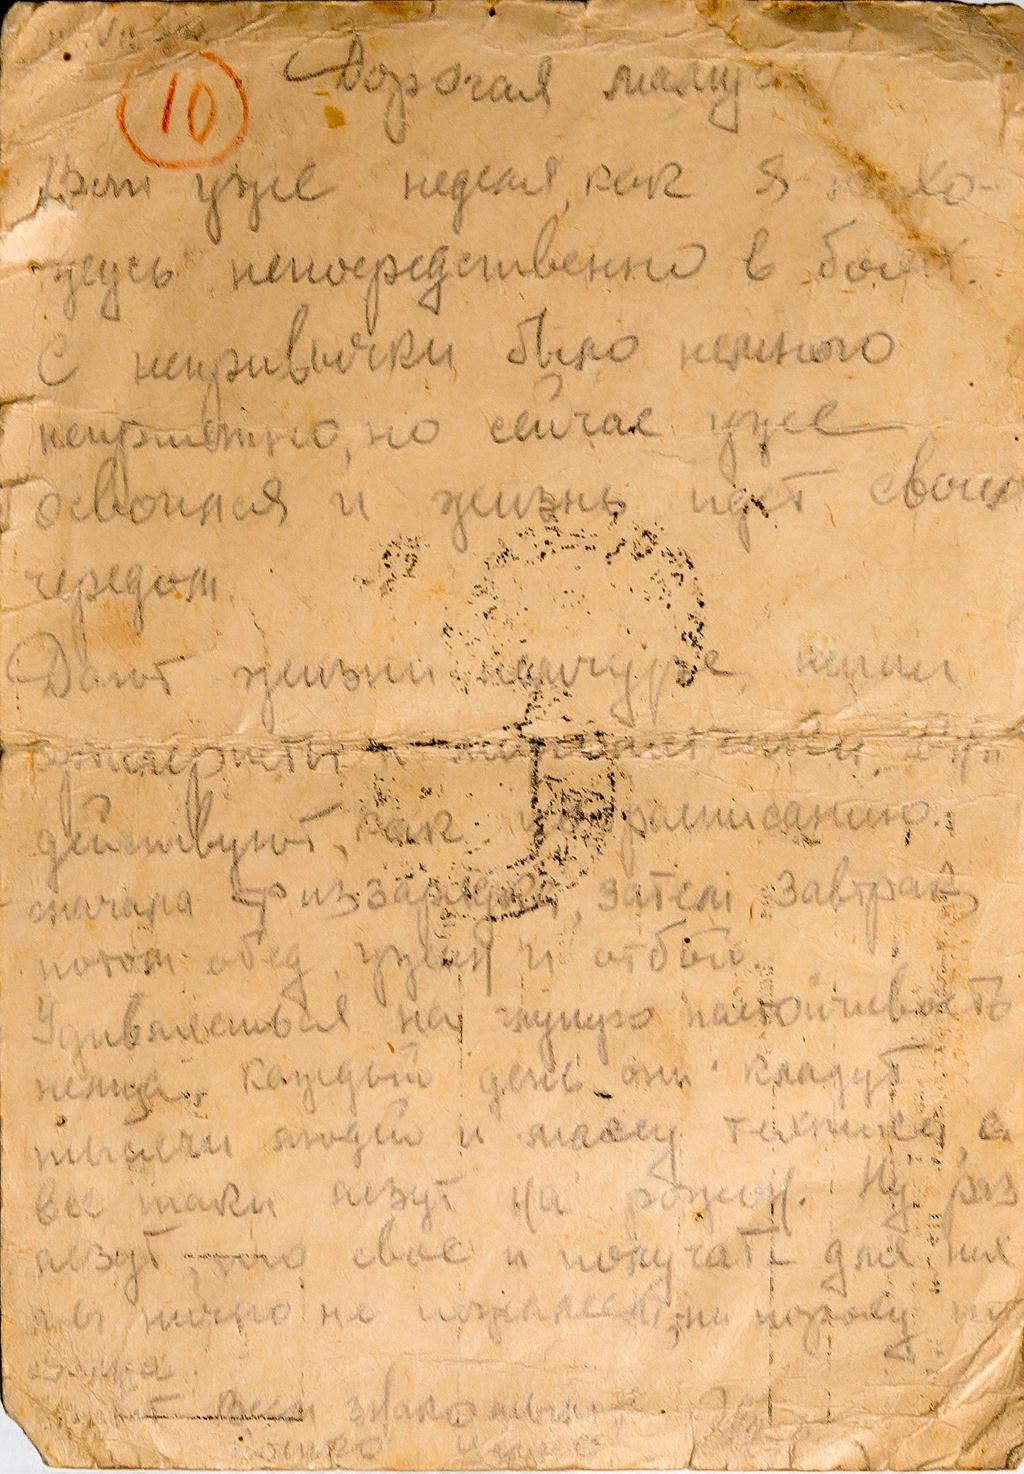 10
Дорогая мамуся!
Вот уже неделя, как я нахо-
жусь непосредственно в боях.
С непривычки было немного
неприятно, но сейчас уже
освоился и жизнь идет своим
чередом.
Дают жизни немчуре наши
артиллеристы и
действуют, как по расписанию.
сначала физзарядка, затем завтрак,
потом обед, ужин и отбой.
Удивляешься на глупую настойчивость
немца. Каждый день они кладут
тысячи людей и массу техники, а
все таки лезут на рожон. Ну раз
лезут, то свое и получат – для них
мы ничего не пожалеем, ни пороху ни
всем знакомым.